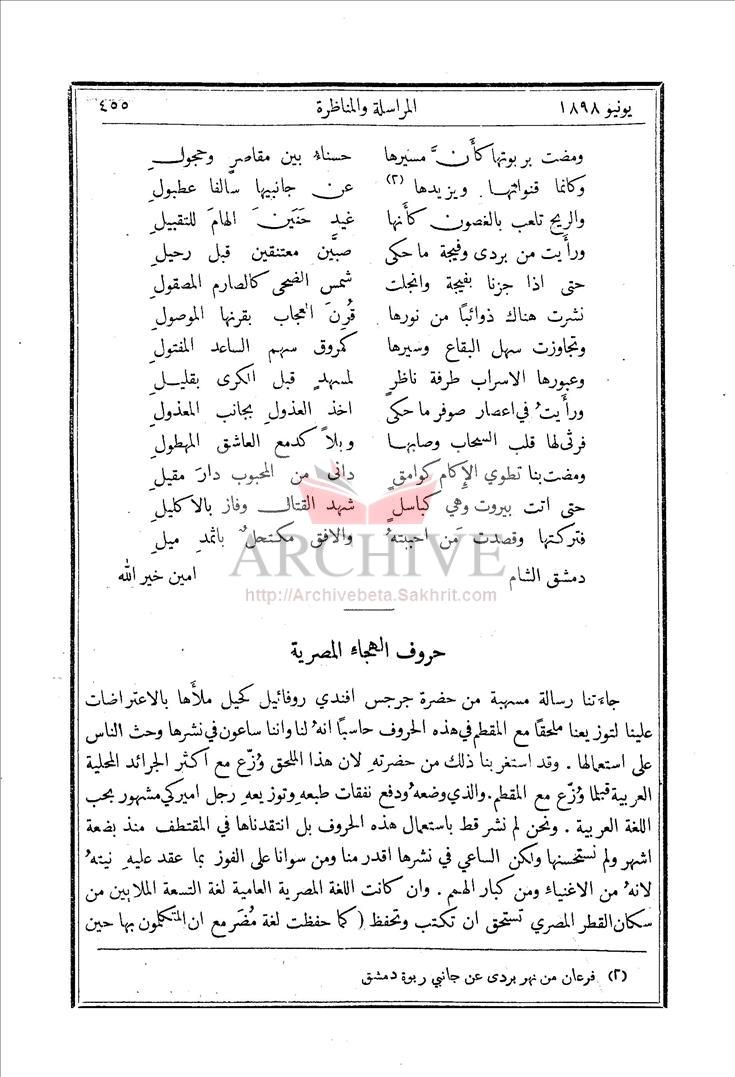 يونيو ١٨٩٨ المراسلة والمناظرة ٤٥٥
ومضت بربوتها كأنَّ مسيرها حسناءُ بين مقاصرٍ وحجولِ
وكانما قنواتها ويزيدها (٢) عن جانبيها سالفا عطبولِ
والريح تلعب بالغصون كأنها غيد حَنَينَ الهامَ للتقبيلِ
ورأَيت من بردى وفيجة ما حكى صبَّين معتنقين قبل رحيلِ
حتى اذا جزنا بفيجة وانجلت شمس الضحى كالصارم المصقولِ
نشرت هناك ذوائبًا من نورها قُرِنَ العجاب بقرنها الموصولِ
وتجاوزت سهل البقاع وسيرها كمروق سهم الساعد المفتولِ
وعبورها الاسراب طرفة ناظرٍ لمسهدٍ قبل الكرى بقليلِ
ورأَيتُ في اعصار صوفر ما حكى اخذ العذولِ بجانب المعذولِ
فرثى لها قلب السحاب وصابها وبلاً كدمع العاشق المهطولِ
ومضت بنا تطوي الإِكام كوامقٍ دانى من المحبوب دارَ مقيلِ
حتى اتت بيروت وهي كباسلٍ شهد القتال وفاز بالاكليلِ
فتركتها وقصدت مَن احببتهُ والافق مكتحلٌ باثمد ميلِ
دمشق الشام امين خير الله
ARCHIVE
http://Archivebeta.Sakhrit.com
حروف الهجاء المصرية
جاءتنا رسالة مسهبة من حضرة جرجس افندي روفائيل كحيل ملأَها بالاعتراضات
علينا لتوزيعنا ملحقًا مع المقطم في هذه الحروف حاسبًا انهُ لنا واننا ساعون في نشرها وحث الناس
على استعمالها . وقد استغربنا ذلك من حضرتهِ لان هذا الملحق وُزّع مع اكثر الجرائد المحلية
العربية قبلما وُزّع مع المقطم. والذي وضعهُ ودفع نفقات طبعهِ وتوزيعهِ رجل اميركي مشهور بحب
اللغة العربية . ونحن لم نشر قط باستعمال هذه الحروف بل انتقدناها في المقتطف منذ بضعة
اشهر ولم نستحسنها ولكن الساعي في نشرها اقدر منا ومن سوانا على الفوز بما عقد عليهِ نيتهُ
لانهُ من الاغنياء ومن كبار الهمم . وان كانت اللغة المصرية العامية لغة التسعة الملايين من
سكان القطر المصري تستحق ان تكتب وتحفظ ( كما حفظت لغة مُضَر مع ان المتكلمون بها حين
(٢) فرعان من نهر بردى عن جانبي ربوة دمشق